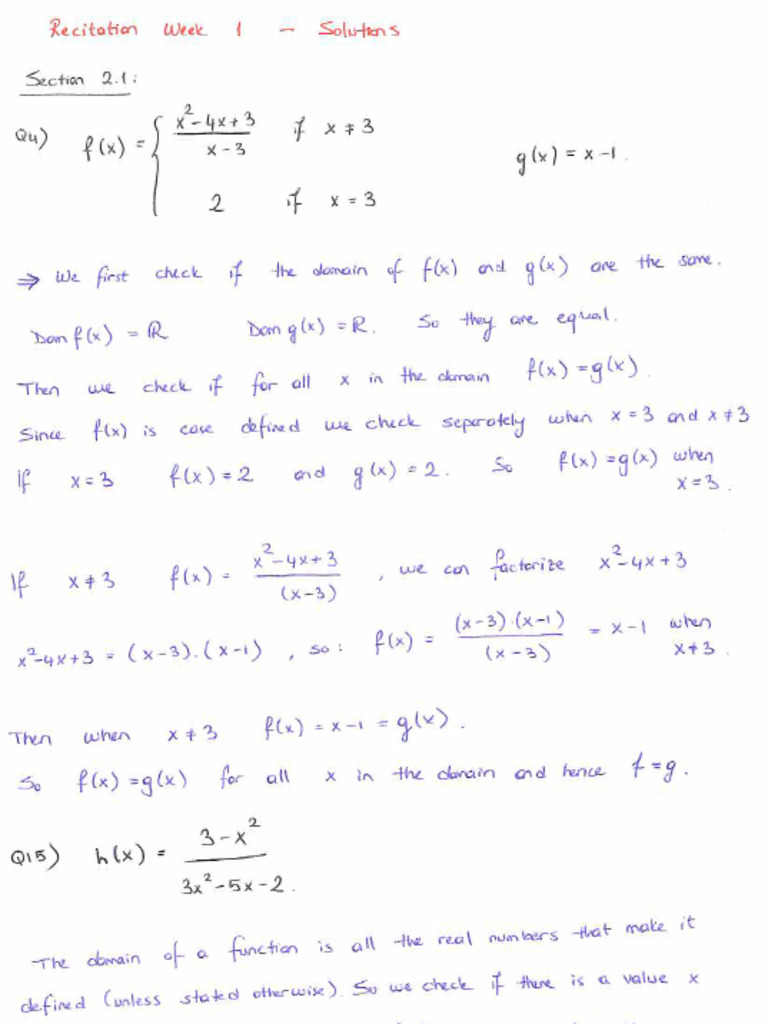 Recitation Week 1 - Solutions
Section 2.1:
Q4) f(x) = { (x²-4x+3)/(x-3) if x ≠ 3
2 if x = 3
g(x) = x-1.
⇒ We first check if the domain of f(x) and g(x) are the same.
Dom f(x) = ℝ Dom g(x) = ℝ. So they are equal.
Then we check if for all x in the domain f(x) = g(x).
Since f(x) is case defined we check seperately when x = 3 and x ≠ 3
If x = 3 f(x) = 2 and g(x) = 2. So f(x) = g(x) when
x = 3.
If x ≠ 3 f(x) = (x²-4x+3)/(x-3), we can factorize x²-4x+3
x²-4x+3 = (x-3).(x-1), so: f(x) = ((x-3).(x-1))/(x-3) = x-1 when
x ≠ 3.
Then when x ≠ 3 f(x) = x-1 = g(x).
So f(x) = g(x) for all x in the domain and hence f = g.
Q15) h(x) = (3-x²)/(3x²-5x-2).
The domain of a function is all the real numbers that make it
defined (unless stated otherwise). So we check if there is a value x